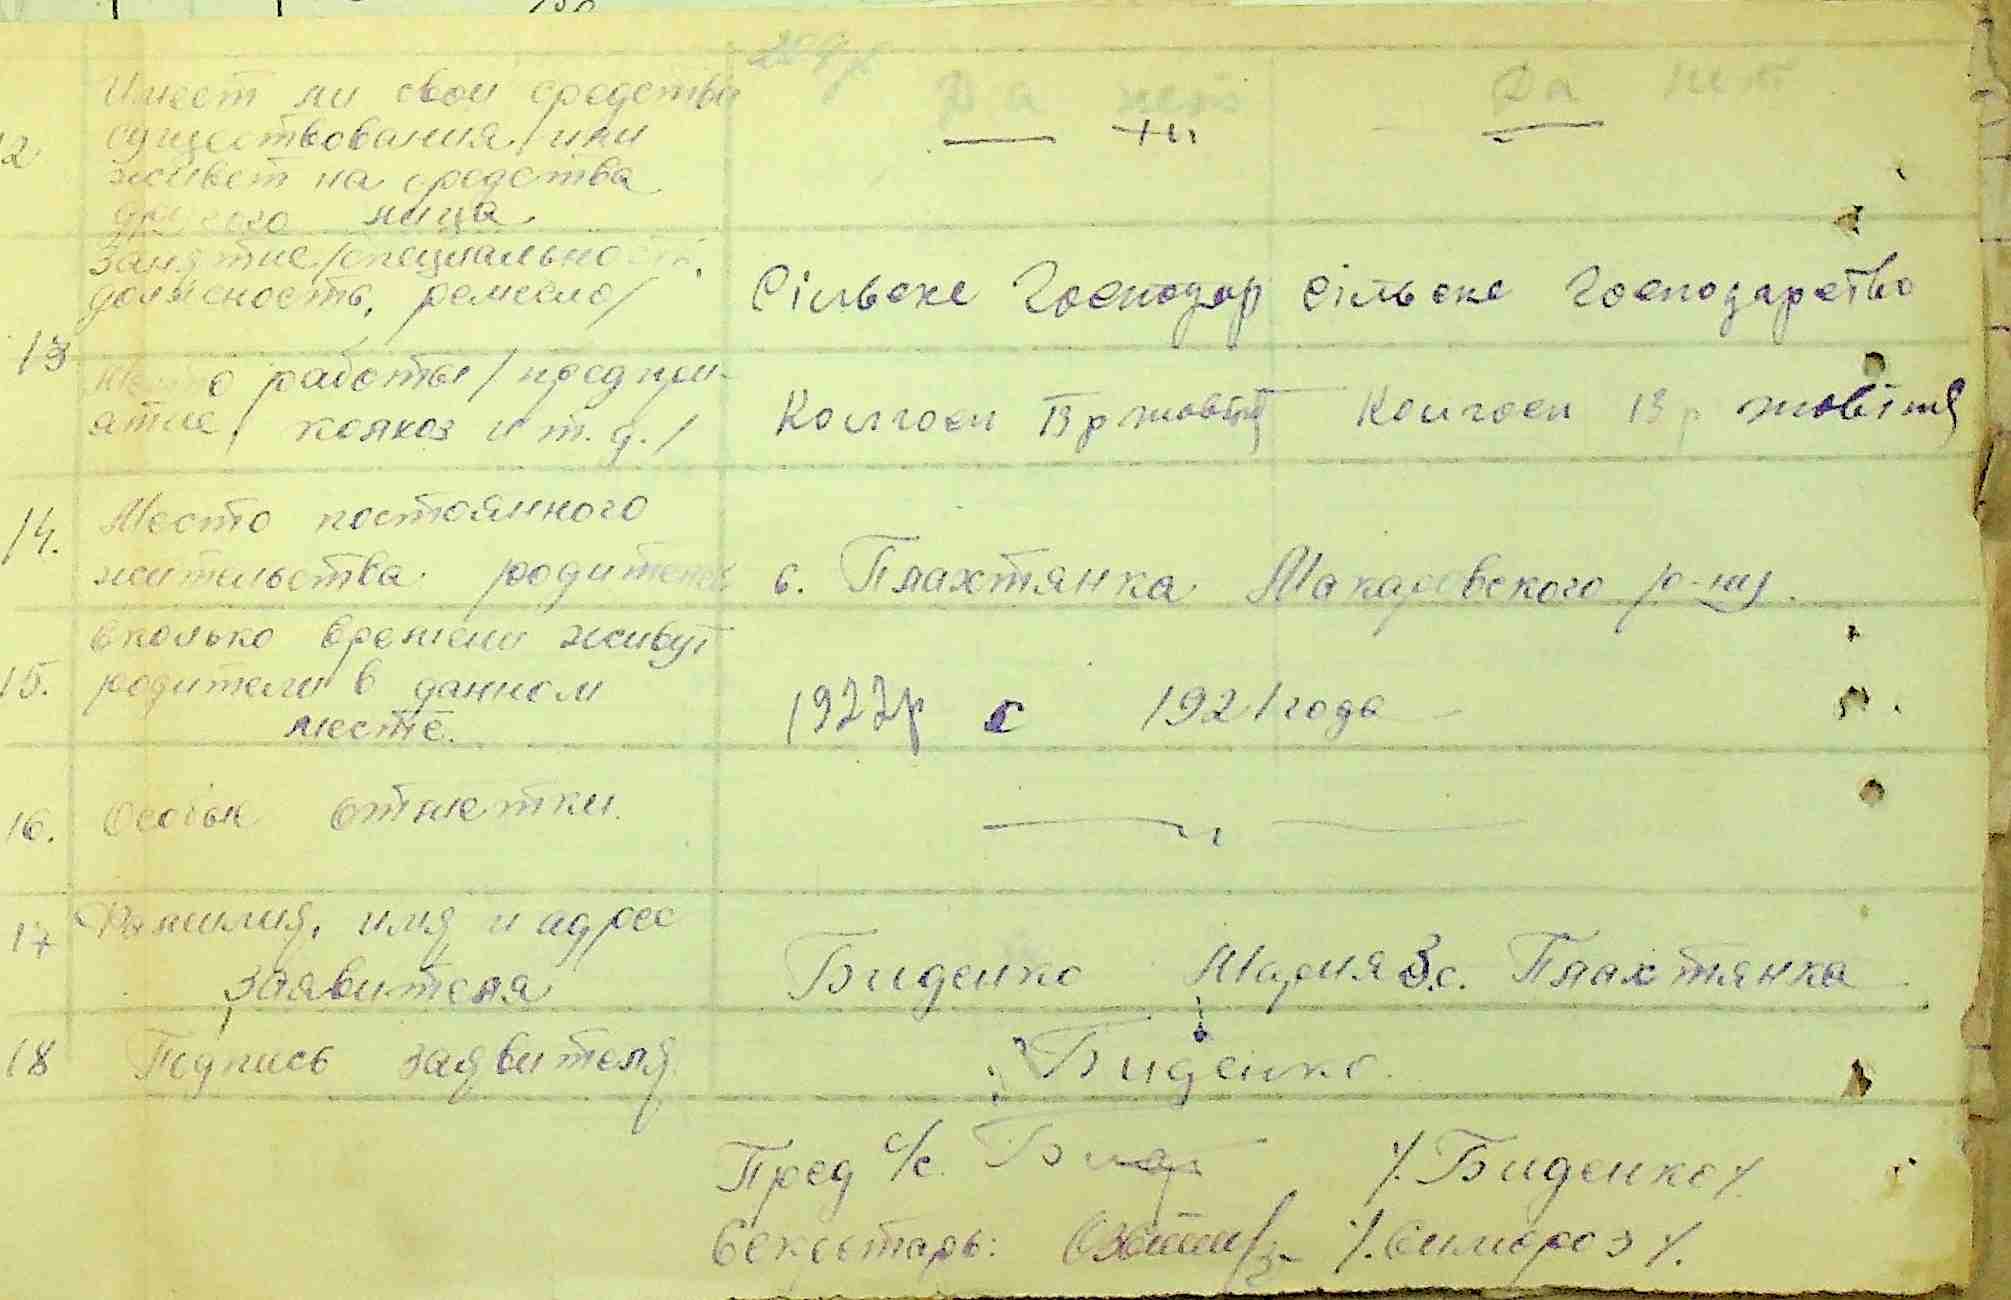 12 Имеет ли свои средства
существования или
живет на средства
другого лица
Да нет Да нет
Занятие /специальность,
должность, ремесло/
Сільське Господар сільське Господарство
13
Место работы / предпри-
ятие, колхоз и т.д. /
Колгосп 13 р жовтня Колгосп 13 р жовтня
14. Место постоянного
жительства родителей
с. Плахтянка Макаровского р-на.
15. Сколько времени живут
родители в данном
месте.
1922р с 1921 года
16. Особые отметки.
17 Фамилия, имя и адрес
заявителя
Биденко Мария З. с. Плахтянка
18 Подпись заявителя
Биденко.
Пред с/с. /.Биденко/.
Секретарь: /.Симороз/.